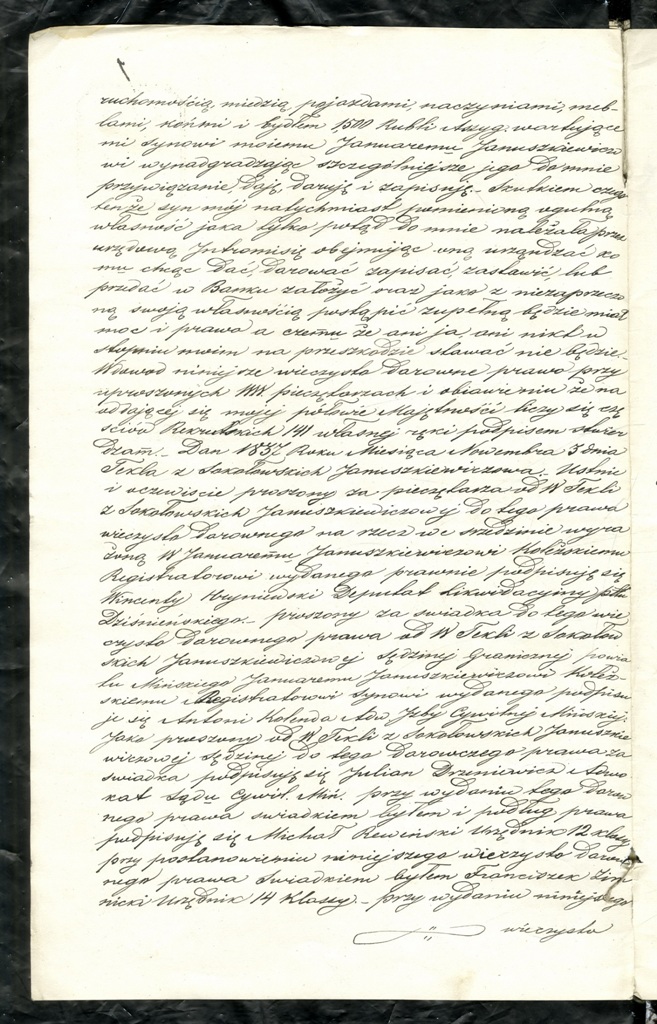 ruchomością, miedzią, pojazdami, naczyniami, meb-
lami, końmi i bydłem 1,500 Rubli Assyg. wartujące
mi synowi moiemu Januaremu Januszkiewiczo
wi wynadgradzając szczególniejsze jego do mnie
przywiązanie, daję, daruję i zapisuję. – Skutkiem czego
tenże syn mój natychmiast pomienioną ogulną
własność jaka tylko potąd do mnie należała przez
urzędową Intromisię obejmując oną urządzać ko
mu chcąc dać, darować zapisać, zastawić lub
przedać w Banku założyć oraz jako z niezaprzeczo
ną swoją własnością postąpić zupełną będzie miał
moc i prawo a czemu że ani ja, ani nikt w
stopniu moim na przeszkodzie stawać nie będzie.
Wdowod niniejsze wieczysto darowne prawo przy
uproszonych WW. pieczętarzach i obiawieniu że na
oddającej się mojej połowie Majętności liczy się czę
ściow Rekrutskich 141 własnej ręki podpisem stwier
dzam. – Dan 1832 Roku Miesiąca Nowembra 3 dnia
Tekla z Sokołowskich Januszkiewiczowa. – Ustnie
i oczewiscie proszony za pieczętarza od W Tekli
z Sokołowskich Januszkiewiczowej do tego prawa
wieczysto darownego na rzecz we srzedzinie wyra
żoną W Januaremu Januszkiewiczowi Koležskiemu
Registratorowi wydanego prawnie podpisuję się
Wincenty Hryniewski Deputat Likwidacyjny pttu
Dziśnieńskiego. – proszony za swiadka do tego wie
czysto darownego prawa od W Tekli z Sokołow
skich Januszkiewiczowej Sędzinej Granicznej powia
tu Mińskiego Januaremu Januszkiewiczowi Koleż-
skiemu Registratorowi Synowi wydanego podpisu
je się Antoni Kolenda Adw. Izby Cywilnej Mińskiej.
Jako proszony od W Tekli z Sokołowskich Januszkie
wiczowej Sędzinej do tego Darowczego prawa za
swiadka podpisuję się Julian Drzeniewicz Adwo
kat Sądu Cywil. Miń. przy wydaniu tego darow
nego prawa swiadkiem byłem i podług prawa
podpisuję się Michał Rewieński Urzędnik 12 klasy
przy postanowieniu niniejszego wieczysto darow
nego prawa Swiadkiem byłem Franciszek Zim
nicki Urzędnik 14 Klassy – przy wydaniu niniejszego
wieczysto